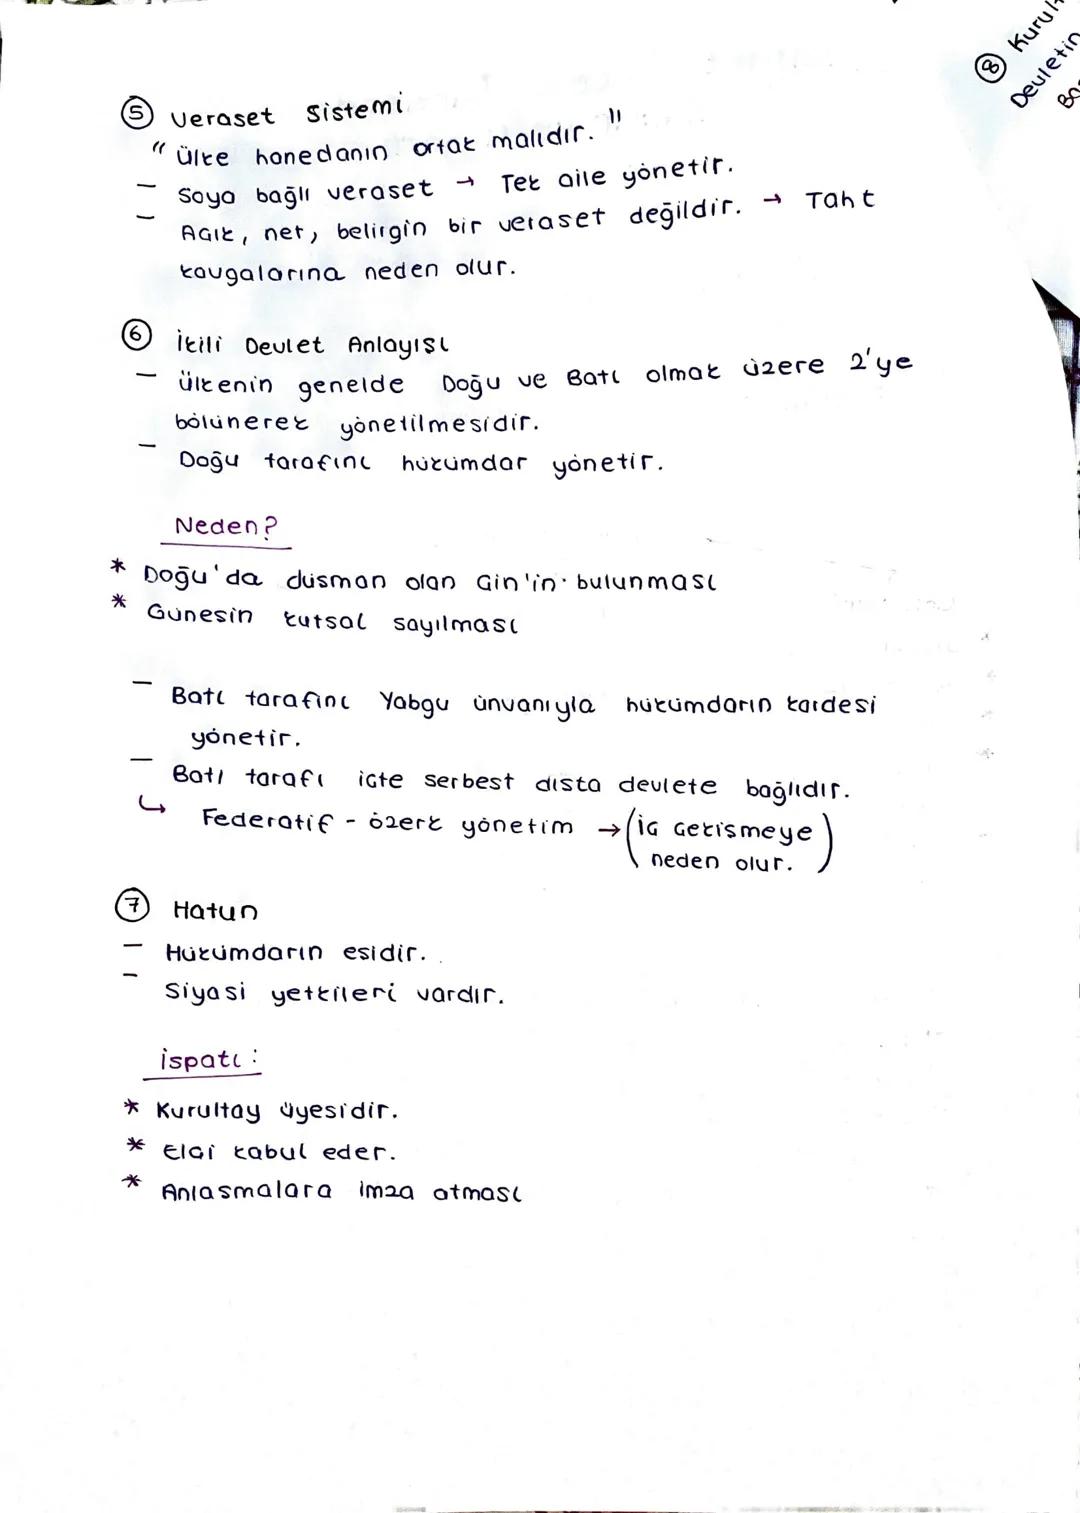 ⑤ Veraset Sistemi
"Ülke hanedanın ortak malıdır."
- Soya bağlı veraset → Tek aile yönetir.
- Açık, net, belirgin bir veraset değildir. → Taht
kavgalarına neden olur.
⑥ İkili Devlet Anlayışı
- Ülkenin genelde Doğu ve Batı olmak üzere 2'ye
bölünerek yönetilmesidir.
- Doğu tarafını hükümdar yönetir.
Neden?
* Doğu'da düsman olan Çin'in bulunması
* Günesin kutsal sayılması
- Batı tarafını Yabgu ünvanıyla hükümdarın kardesi
yönetir.
- Batı tarafı içte serbest dısta devlete bağlıdır.
↳ Federatif - özerk yönetim → (iç çekişmeye
neden olur.)
⑦ Hatun
- Hükümdarın esidir.
- Siyasi yetkileri vardır.
ispatı:
* Kurultay üyesidir.
* Elçi kabul eder.
* Anlasmalara imza atması
⑧ Kurul
Devletin